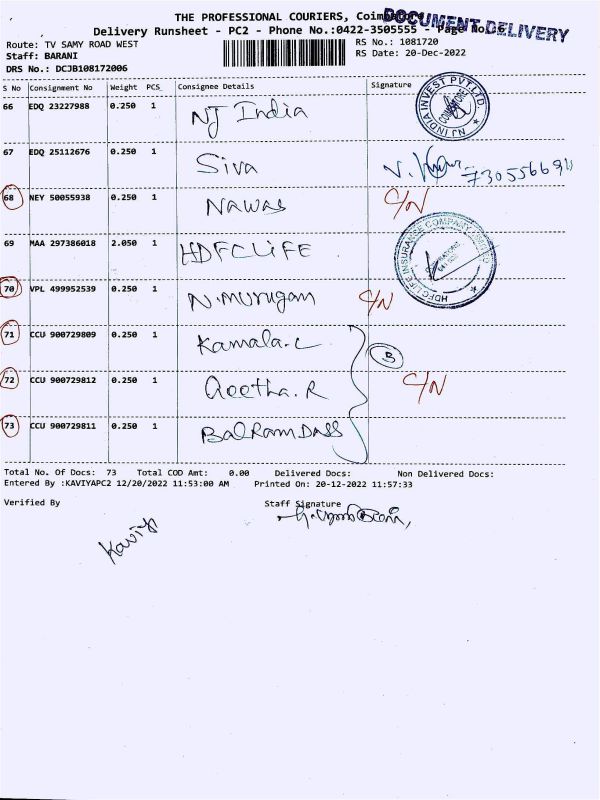 THE PROFESSIONAL COURIERS,
DOCUMENT DELIVERY
Delivery Runsheet - PC2 - Phone No.:0422-3505555 - Page No.
Route: TV SAMY ROAD WEST RS No.: 1081720
Staff: BARANI RS Date: 20-Dec-2022
DRS No.: DCJB108172006
S No Consignment No Weight PCS Consignee Details Signature
66 EDQ 23227988 0.250 1 NJ India NJ INDIA INVEST PVT. LTD.
67 EDQ 25112676 0.250 1 Siva
68 NEY 50055938 0.250 1 NAWAS C/N
69 MAA 297386018 2.050 1 HDFC LiFE HDFC LIFE INSURANCE COMPANY LIMITED
70 VPL 499952539 0.250 1 N.murugam C/N
71 CCU 900729809 0.250 1 Kamala.c
B
72 CCU 900729812 0.250 1 Geetha.R C/N
73 CCU 900729811 0.250 1 BalRamDass
Total No. Of Docs: 73 Total COD Amt: 0.00 Delivered Docs: Non Delivered Docs:
Entered By :KAVIYAPC2 12/20/2022 11:53:00 AM Printed On: 20-12-2022 11:57:33
Verified By Staff Signature
Kaviya